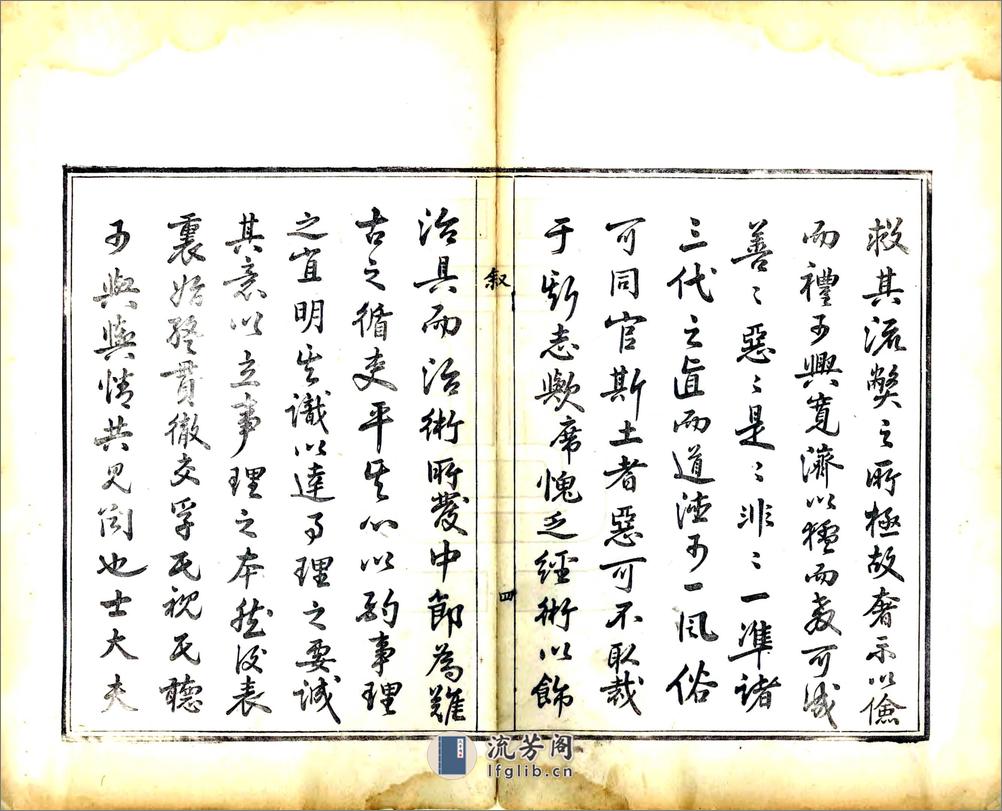 救其流弊之所極故奢示以儉
而禮可興寬濟以猛而教可成
善〻惡〻是〻非〻一準諸
三代之直而道德可一風俗
可同官斯土者惡可不取裁
于斯志歟席愧乏經術以飾
敘
四
治具而治術所發中節為難
古之循吏平其心以酌事理
之宜明其識以達事理之要誠
其意以立事理之本然後表
裏始終貫徹交孚民視民聽
可與輿情共見聞也士大夫
流芳阁
lfglib.cn